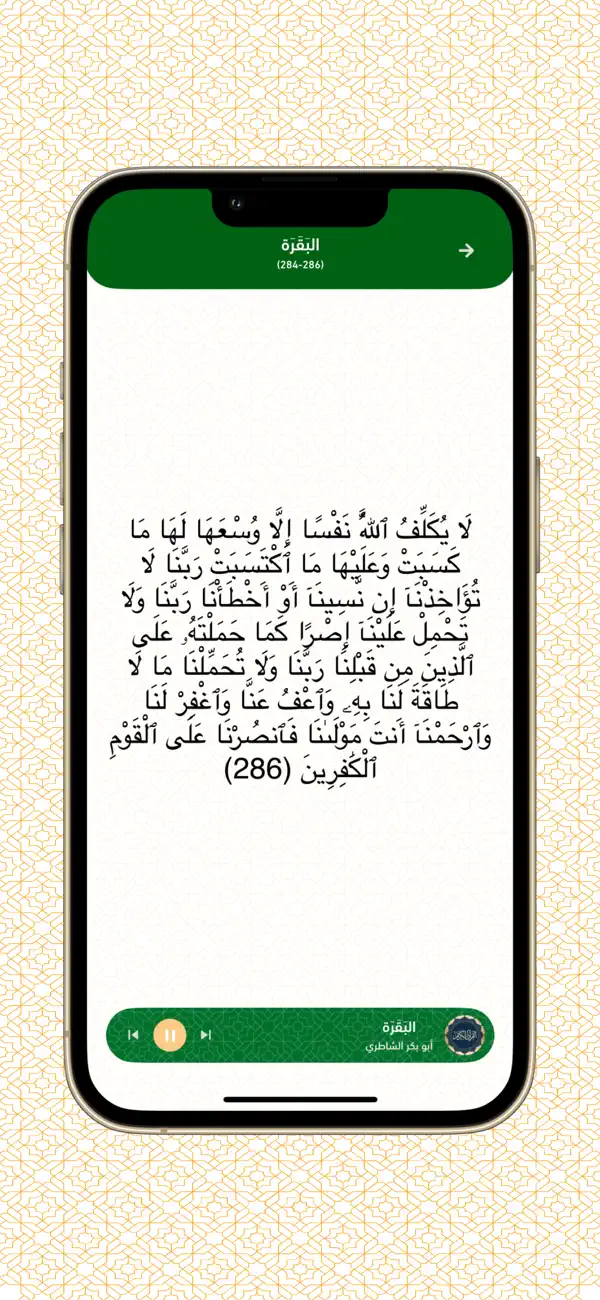 البَقَرَة
(284-286)
لَا يُكَلِّفُ ٱللَّهُ نَفْسًا إِلَّا وُسْعَهَا لَهَا مَا
كَسَبَتْ وَعَلَيْهَا مَا ٱكْتَسَبَتْ رَبَّنَا لَا
تُؤَاخِذْنَآ إِن نَّسِينَآ أَوْ أَخْطَأْنَا رَبَّنَا وَلَا
تَحْمِلْ عَلَيْنَآ إِصْرًا كَمَا حَمَلْتَهُۥ عَلَى
ٱلَّذِينَ مِن قَبْلِنَا رَبَّنَا وَلَا تُحَمِّلْنَا مَا لَا
طَاقَةَ لَنَا بِهِۦ وَٱعْفُ عَنَّا وَٱغْفِرْ لَنَا
وَٱرْحَمْنَآ أَنتَ مَوْلَىٰنَا فَٱنصُرْنَا عَلَى ٱلْقَوْمِ
ٱلْكَٰفِرِينَ (286)
البَقَرَة
أبو بكر الشاطري